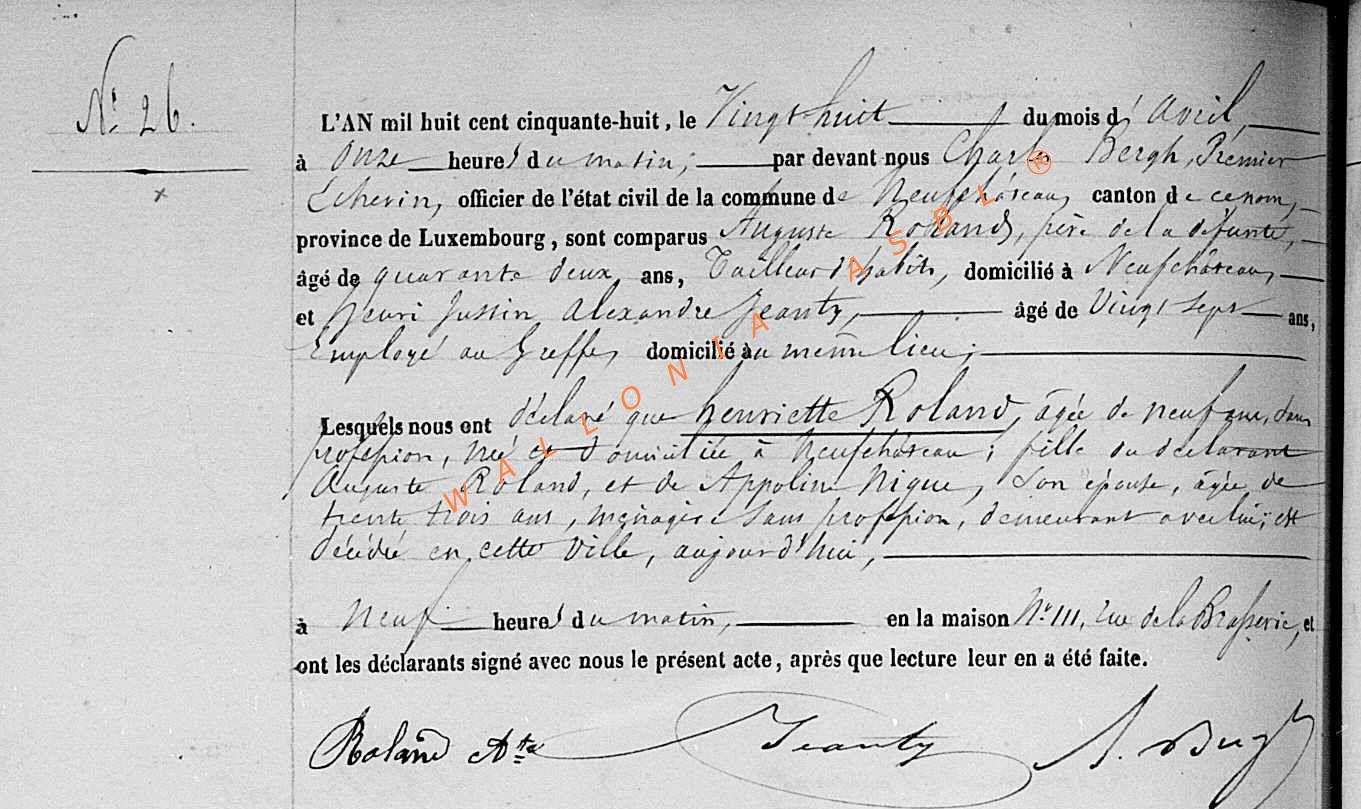 N° 26.
L'AN mil huit cent cinquante-huit, le Vingt huit du mois d'Avril,
à Onze heures du matin; par devant nous Charles Bergh, Premier
Echevin, officier de l'état civil de la commune de Neufchâteau, canton de ce nom,
province de Luxembourg, sont comparus Auguste Roland, père de la défunte,
âgé de quarante deux ans, Tailleur d'habits, domicilié à Neufchâteau,
et Henri Justin Alexandre Jeanty, âgé de Vingt sept ans,
Employé au Greffe, domicilié au même lieu;
Lesquels nous ont déclaré que henriette Roland, âgée de neuf ans, sans
profession, née et domiciliée à Neufchâteau; fille du déclarant
Auguste Roland, et de Appoline Nique, son épouse, âgée de
trente trois ans, ménagère sans profession, demeurant avec lui; est
décédée en cette Ville, aujourd'hui,
à Neuf heures du matin, en la maison N° 111, rue de la Brasserie, et
ont les déclarants signé avec nous le présent acte, après que lecture leur en a été faite.
Roland Ate Jeanty
WALLONIA ASBL ®